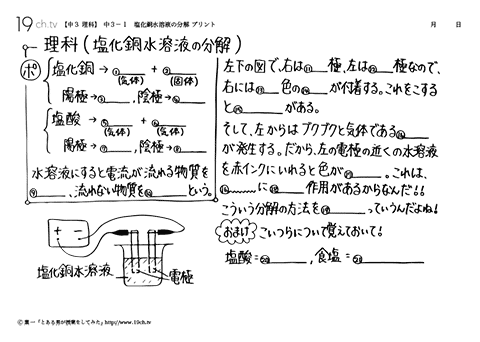 19ch.tv 【中3 理科】 中3-1 塩化銅水溶液の分解 プリント 月 日
理科(塩化銅水溶液の分解)
ポ
塩化銅→①____+②____
(気体) (固体)
陽極→③____,陰極→④____
塩酸→⑤____+⑥____
(気体) (気体)
陽極→⑦____,陰極→⑧____
水溶液にすると電流が流れる物質を
⑨____、流れない物質を⑩____という。
+ -
塩化銅水溶液
電極
左下の図で,右は⑪__極,左は⑫__極なので,
右には⑬__色の⑭____が付着する。これをこすると⑮____がある。
そして,左からはブクブクと気体である⑯____が発生する。だから,左の電極の近くの水溶液
を赤インクにいれると色が⑰____。これは、
⑱____に⑲____作用があるからなんだ!!
こういう分解の方法を⑳____っていうんだよね!
おまけ こいつらについて覚えておいて!
塩酸=____,食塩=____
Ⓒ 葉一「とある男が授業をしてみた」http://www.19ch.tv